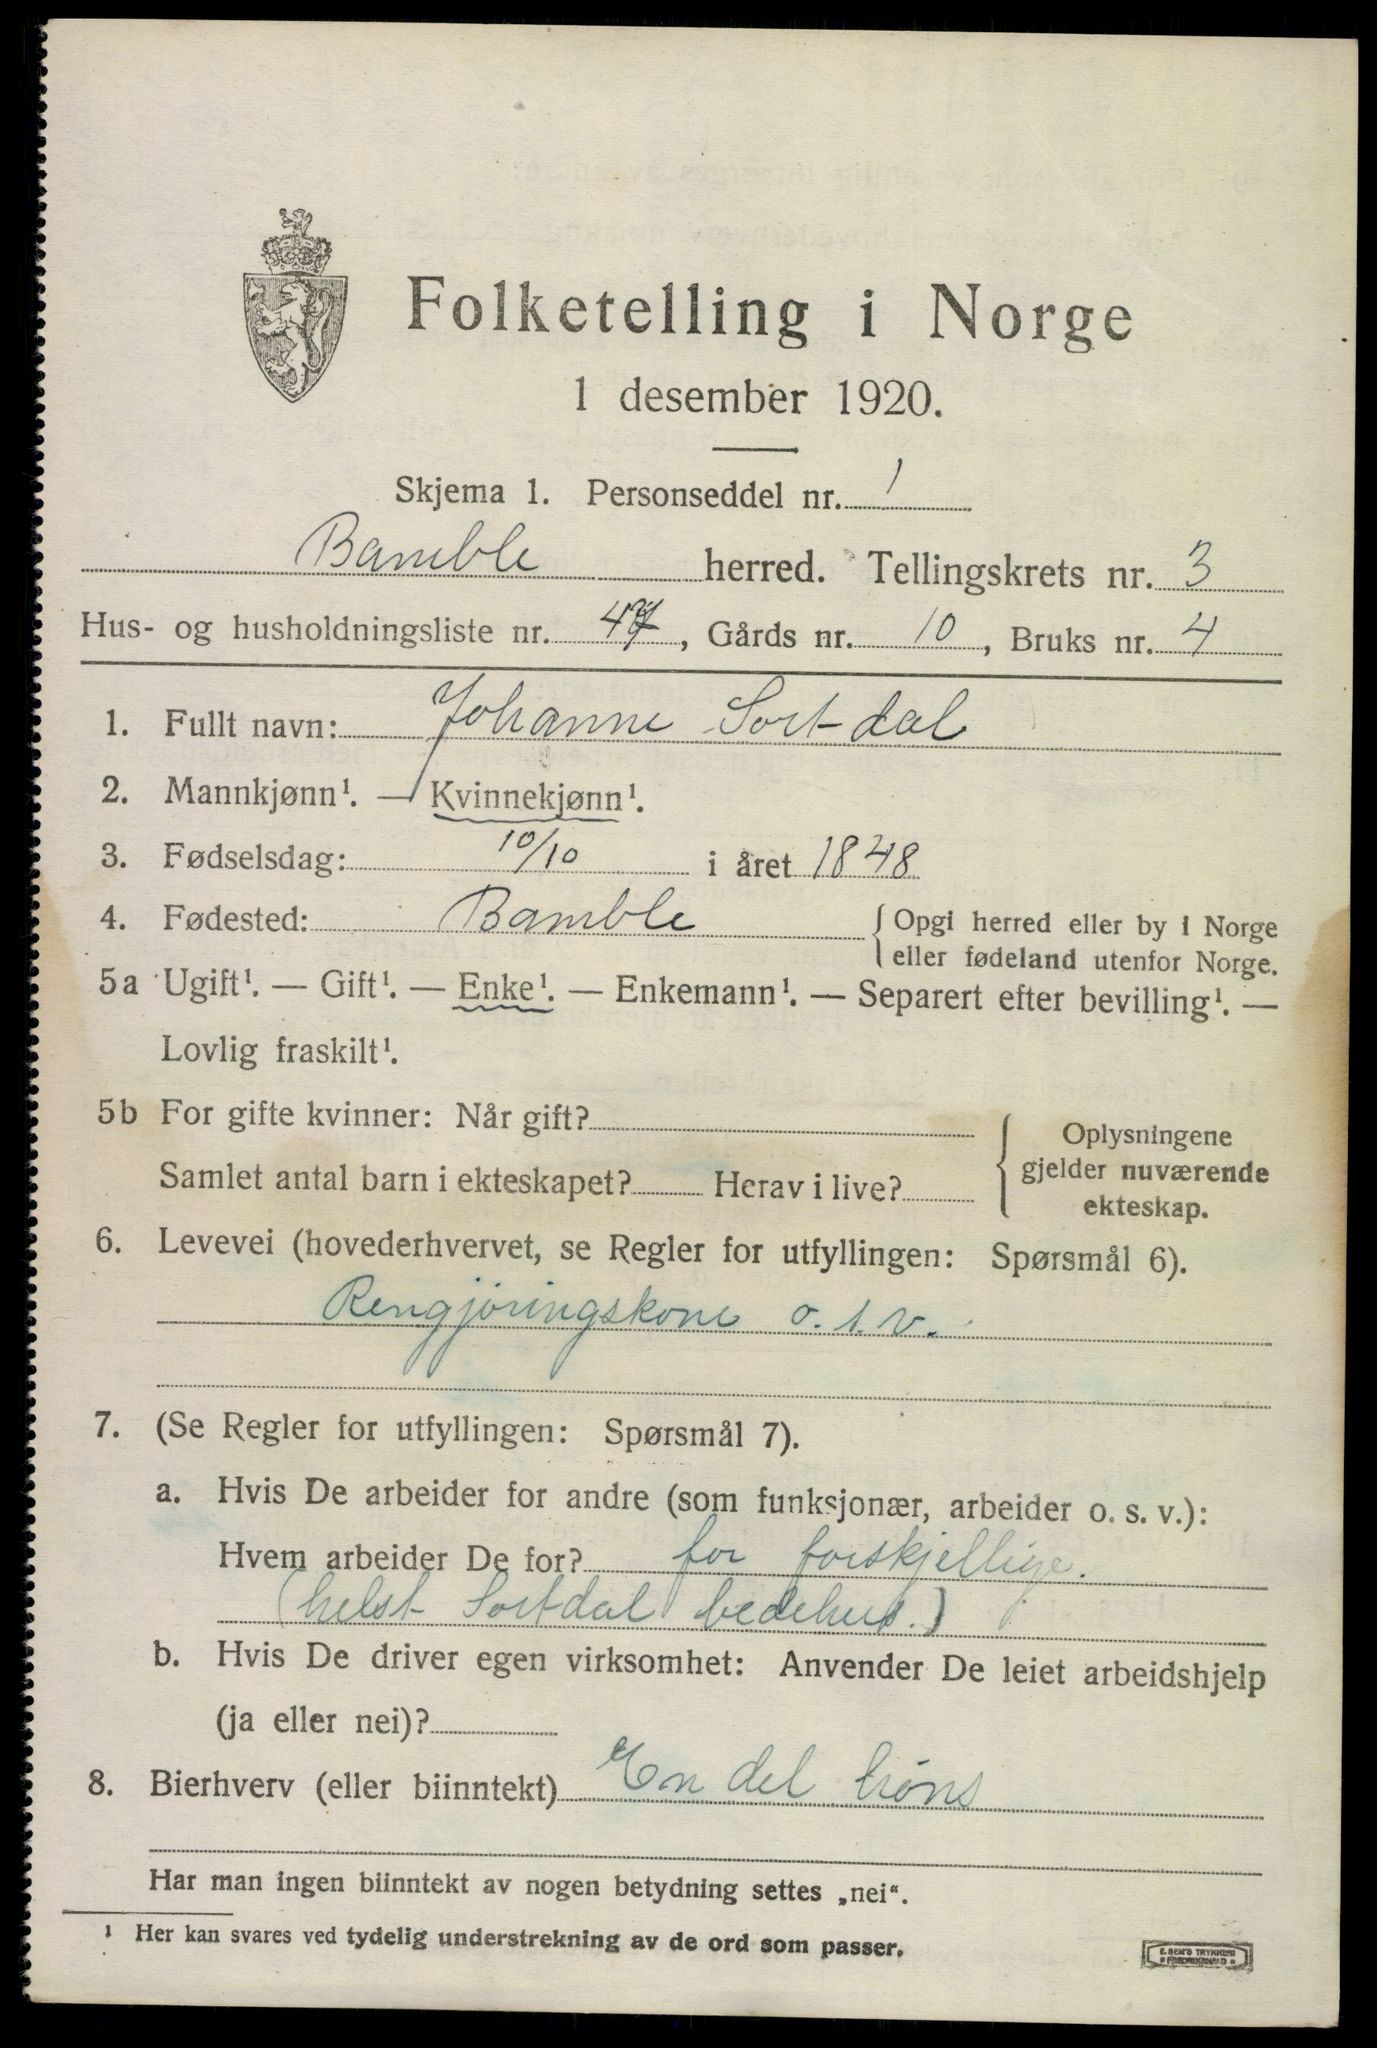 Folketelling i Norge
1 desember 1920.
Skjema 1. Personseddel nr. 1
Bamble herred. Tellingskrets nr. 3
Hus- og husholdningsliste nr. 47, Gårds nr. 10, Bruks nr. 4
1. Fullt navn: Johanne Sortdal
2. Mannkjønn¹. — Kvinnekjønn¹.
3. Fødselsdag: 10/10 i året 1848
4. Fødested: Bamble { Opgi herred eller by i Norge
eller fødeland utenfor Norge.
5a Ugift¹. — Gift¹. — Enke¹. — Enkemann¹. — Separert efter bevilling¹. —
Lovlig fraskilt¹.
5b For gifte kvinner: Når gift?
Samlet antal barn i ekteskapet? Herav i live?
{ Oplysningene
gjelder nuværende
ekteskap.
6. Levevei (hovederhvervet, se Regler for utfyllingen: Spørsmål 6).
Rengjøringskone o.s.v.
7. (Se Regler for utfyllingen: Spørsmål 7).
a. Hvis De arbeider for andre (som funksjonær, arbeider o. s. v.):
Hvem arbeider De for? for forskjellige.
(helst Sortdal bedehus.)
b. Hvis De driver egen virksomhet: Anvender De leiet arbeidshjelp
(ja eller nei)?
8. Bierhverv (eller biinntekt) En del høns
Har man ingen biinntekt av nogen betydning settes „nei“.
¹ Her kan svares ved tydelig understrekning av de ord som passer.
E. SEM'S TRYKKERI
FREDRIKSHALD